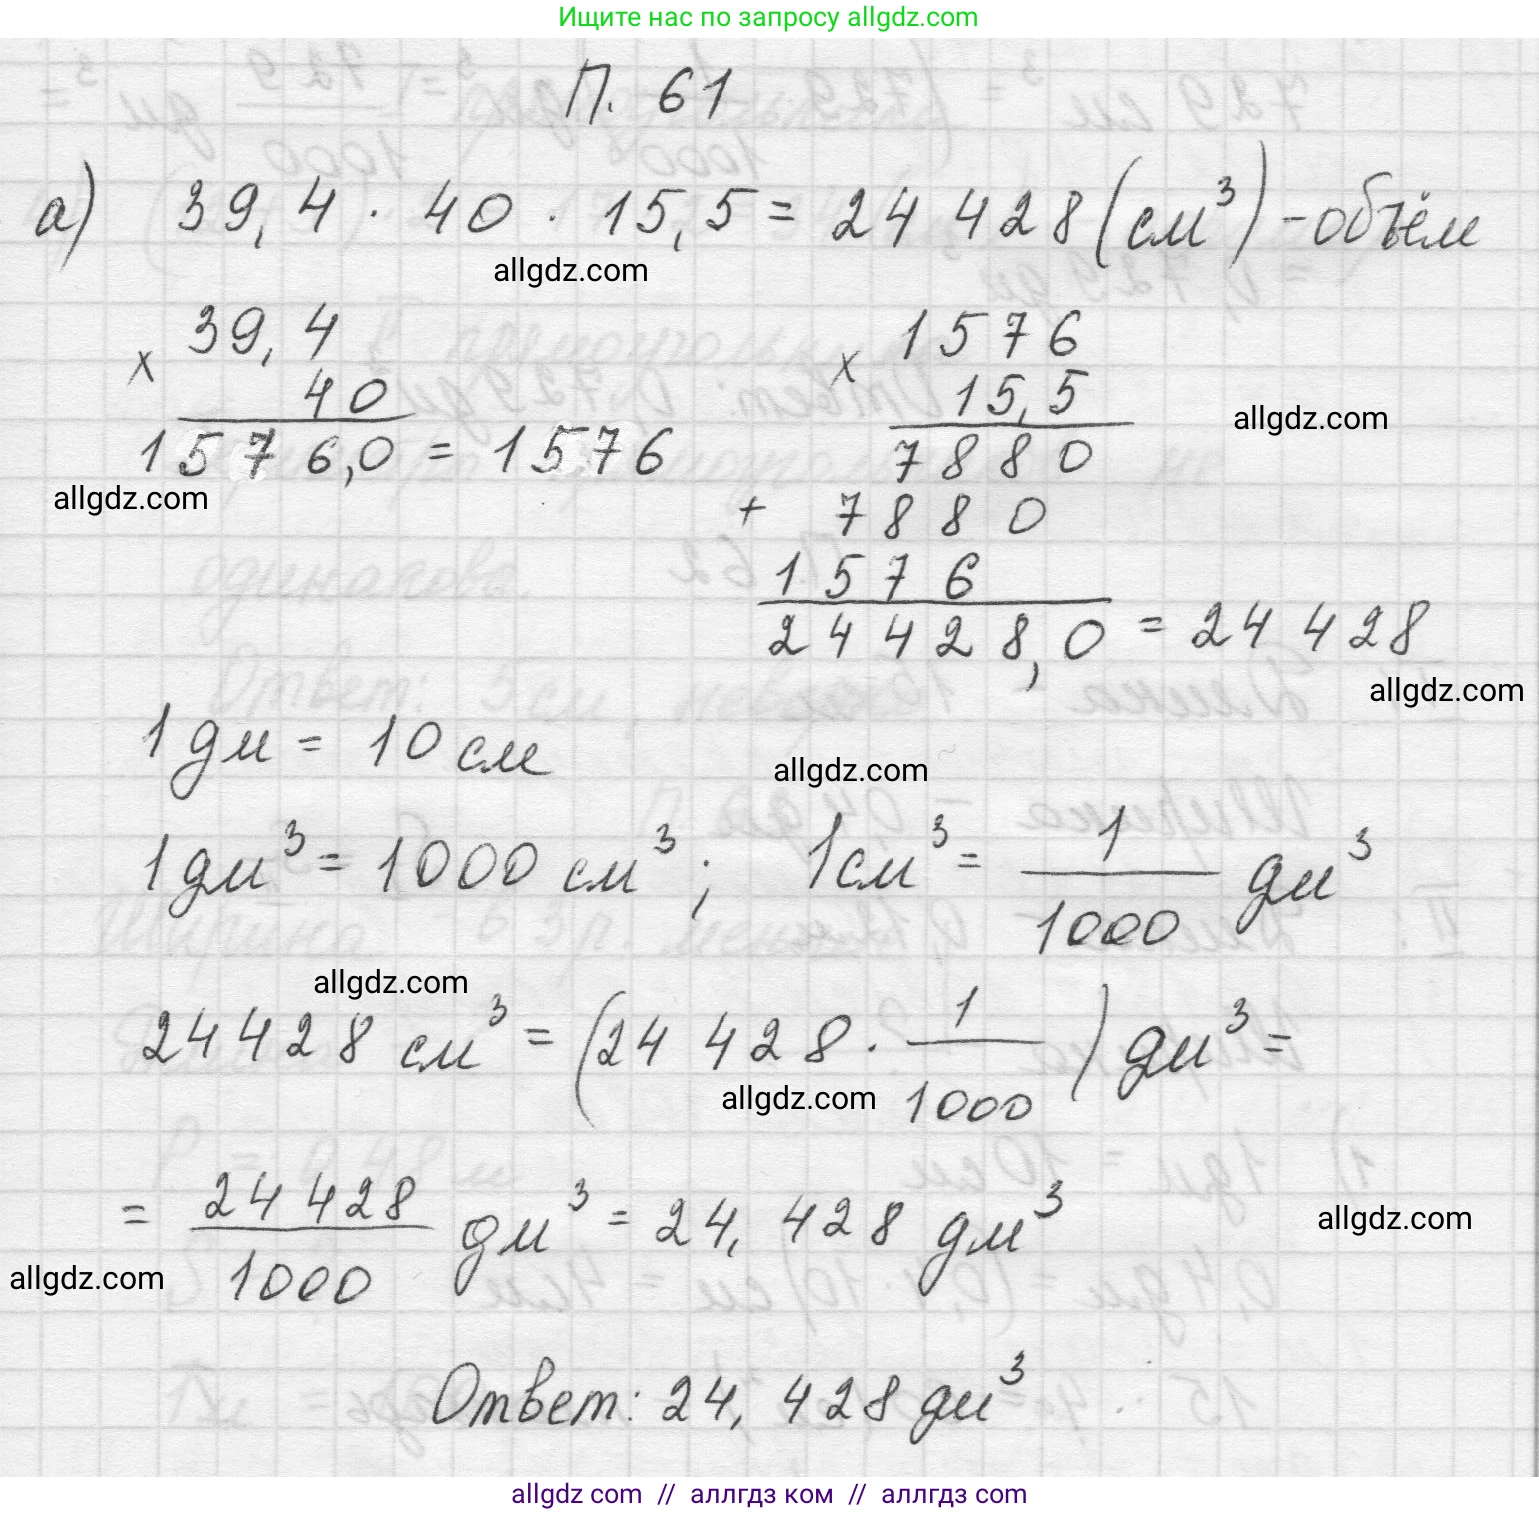 Ищите нас по запросу allgdz.com
П. 61
а) 39,4 · 40 · 15,5 = 24 428 (см³) - объём
allgdz.com
39,4
x 40
1576,0 = 1576
allgdz.com
1576
x 15,5
allgdz.com
7880
+ 7880
1576
24428,0 = 24 428
allgdz.com
1 дм = 10 см
allgdz.com
1 дм³ = 1000 см³; 1 см³ = 1/1000 дм³
allgdz.com
24 428 см³ = (24 428 · 1/1000) дм³ =
allgdz.com
= 24 428/1000 дм³ = 24,428 дм³
allgdz.com
allgdz.com
Ответ: 24,428 дм³
allgdz com // аллгдз ком // аллгдз com